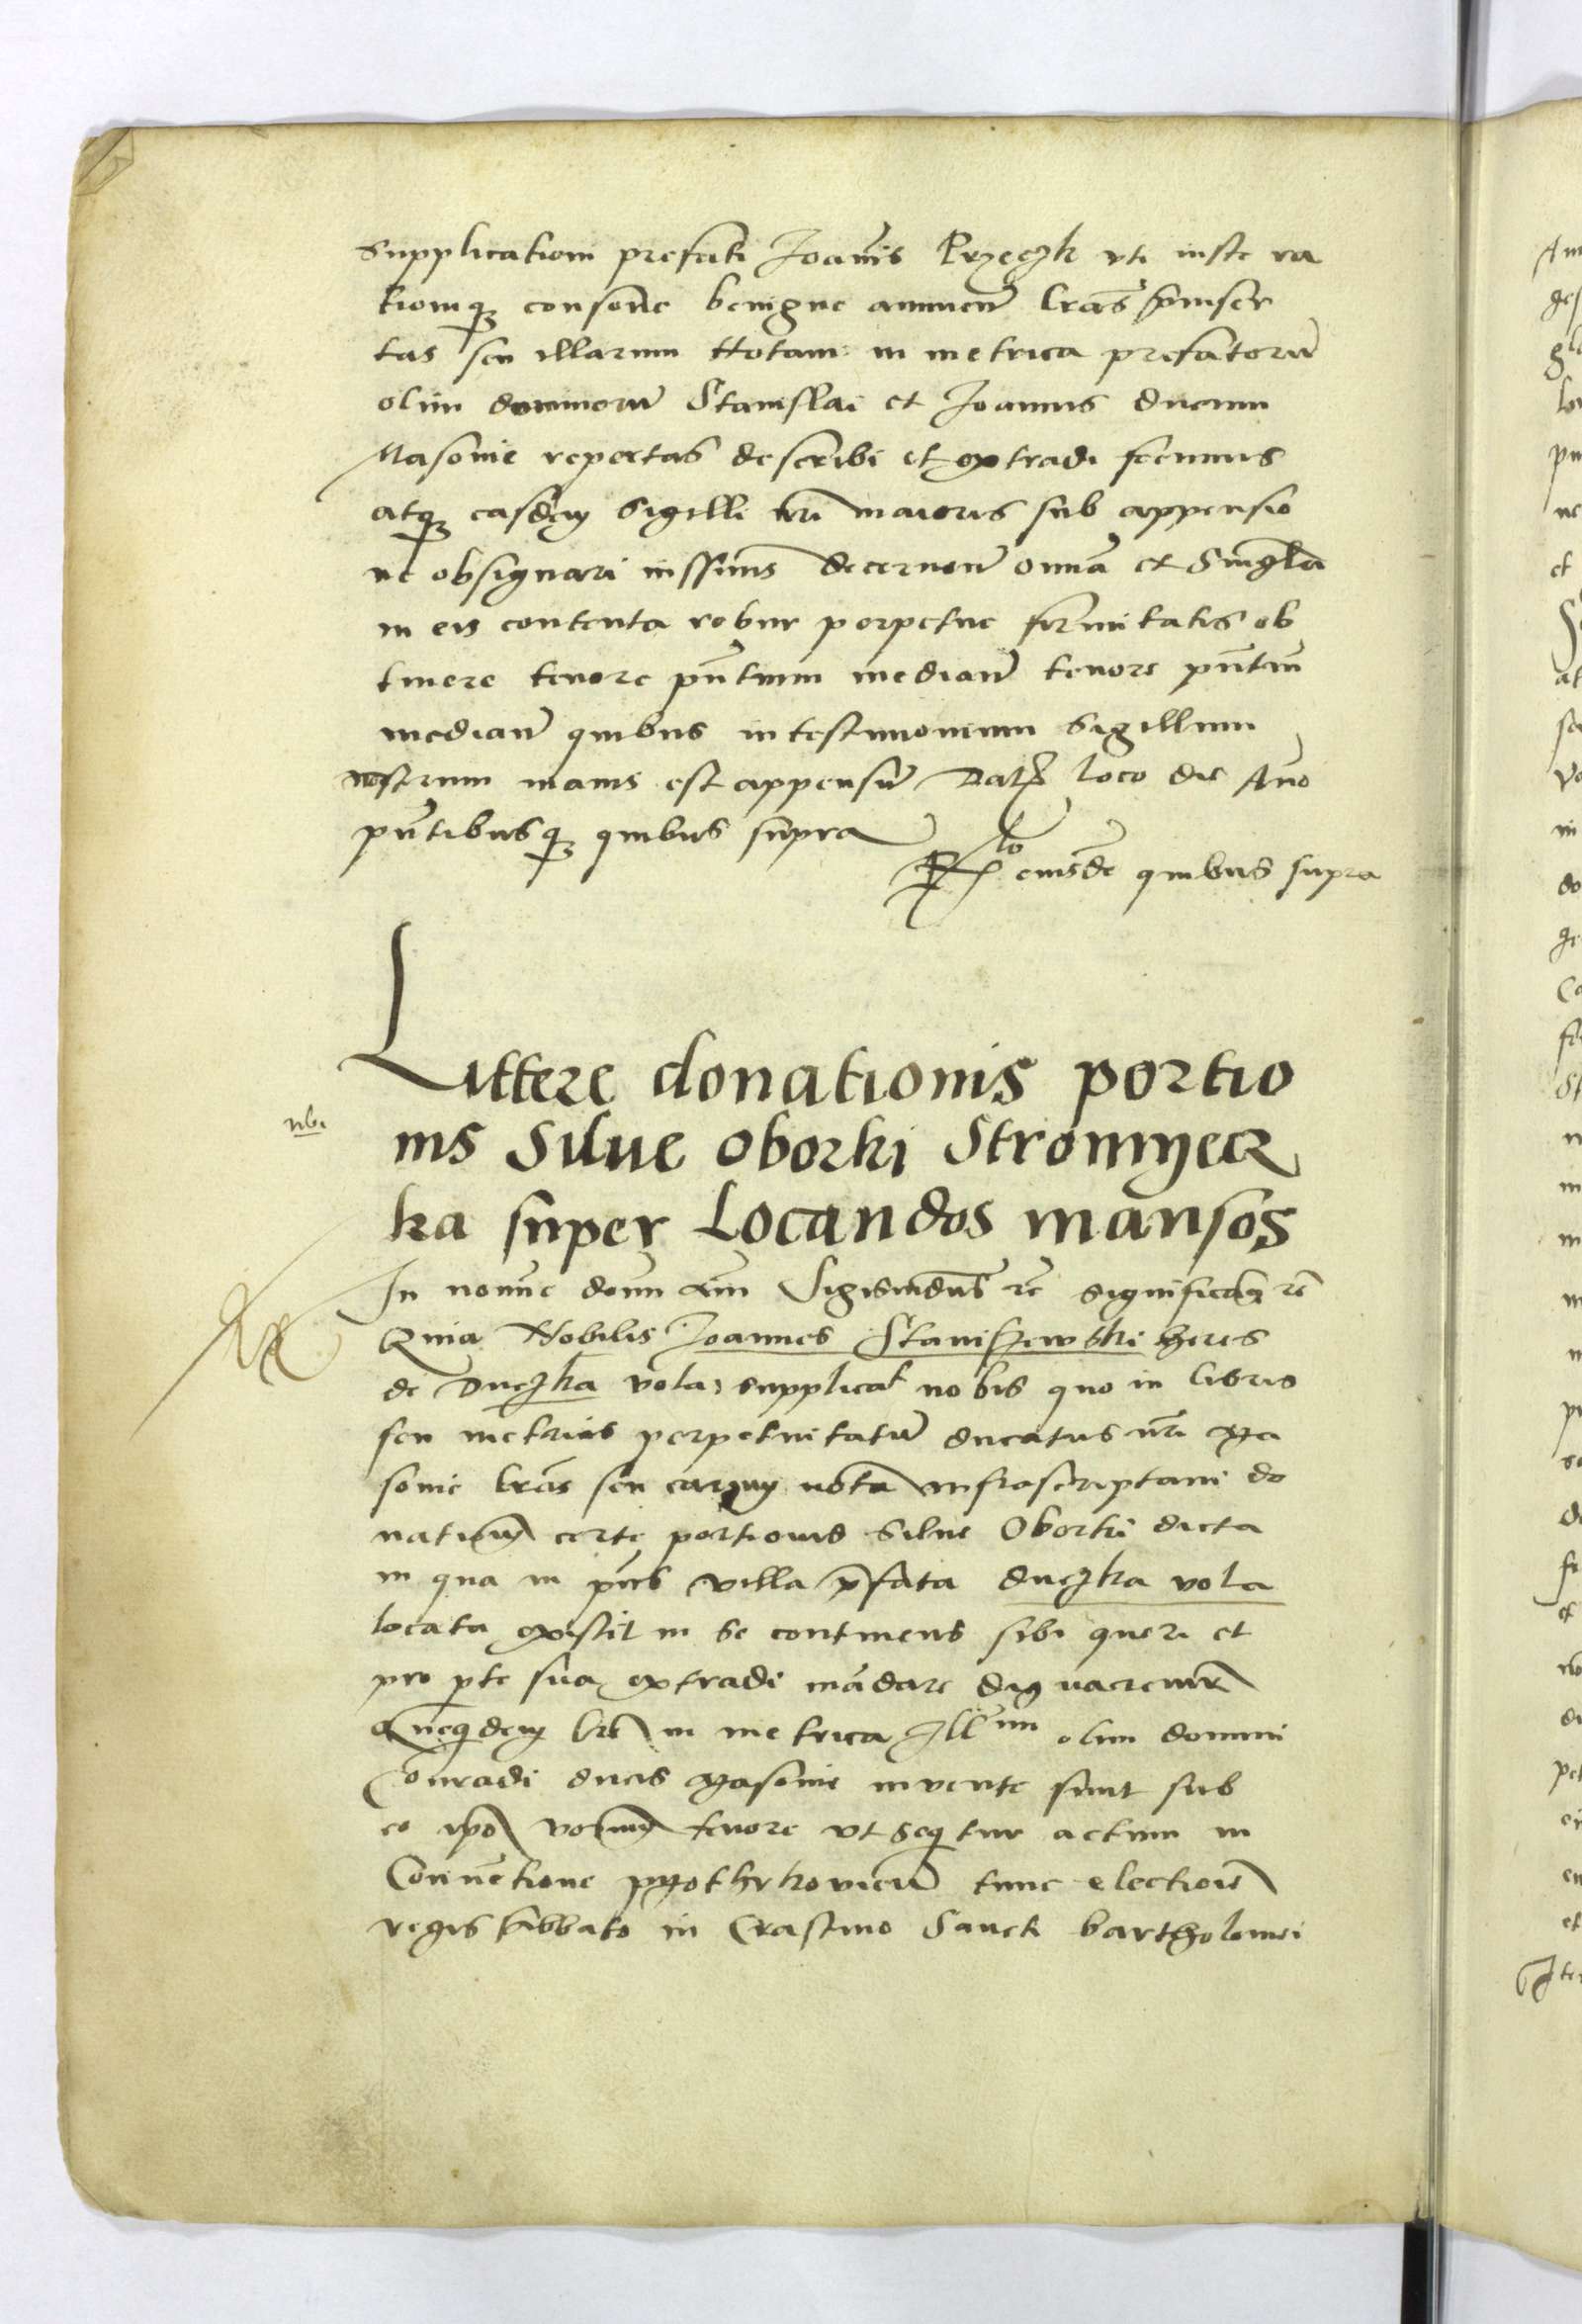 Supplicationi prefati Joañis Przeczk vti iuste ra
tioniq3 consone benigne annuen̄ lr̄as p̄inser
tas seu illarum Notam in metrica prefatorū
olim dominorū Stanislai et Joannis ducum
Masovie repertas describi et extradi fecimus
atq3 easdem Sigilli nr̄i maioris sub appensio
ne obsignari iussimus decernen̄ omīa et Singl̄a
in eis contenta robur perpetue firmitatis ob
tinere tenore pn̄tium median̄ tenore pn̄tiū
median̄ quibus in testimonium Sigillum
nostrum maius est appensū Dat loco die Año
pn̄tibusq3 quibus supra
Rlo eiusdē quibus supra
Littere donationis portio
nis Silue Oborki Stromyecz
ka super Locandos mansos
nb.
In nomīe domī am̄ Sigismūdus rē significam9 rē
Quia Nobilis Joannes Staniszewski heres
de Duczka vola supplicat nobis quo in libris
seu metricis perpetuitatū ducatus nr̄i Ma
sovie lr̄as seu earum notā infrascriptam do
nationem certe portionis Silue Oborki dicta
in qua in pn̄s villa p̄fata duczka vola
locata existit in se continens sibi queri et
pro pte sua extradi mādare dignaremur
Quequidem lr̄e in metrica Illmi olim domini
Conradi ducis Masovie invente sunt sub
eo ipō verborum tenore vt sequitur actum in
Conuētione pyothrkovien̄ tunc electionis
regis sabbato in Crastino Sancti bartholomei